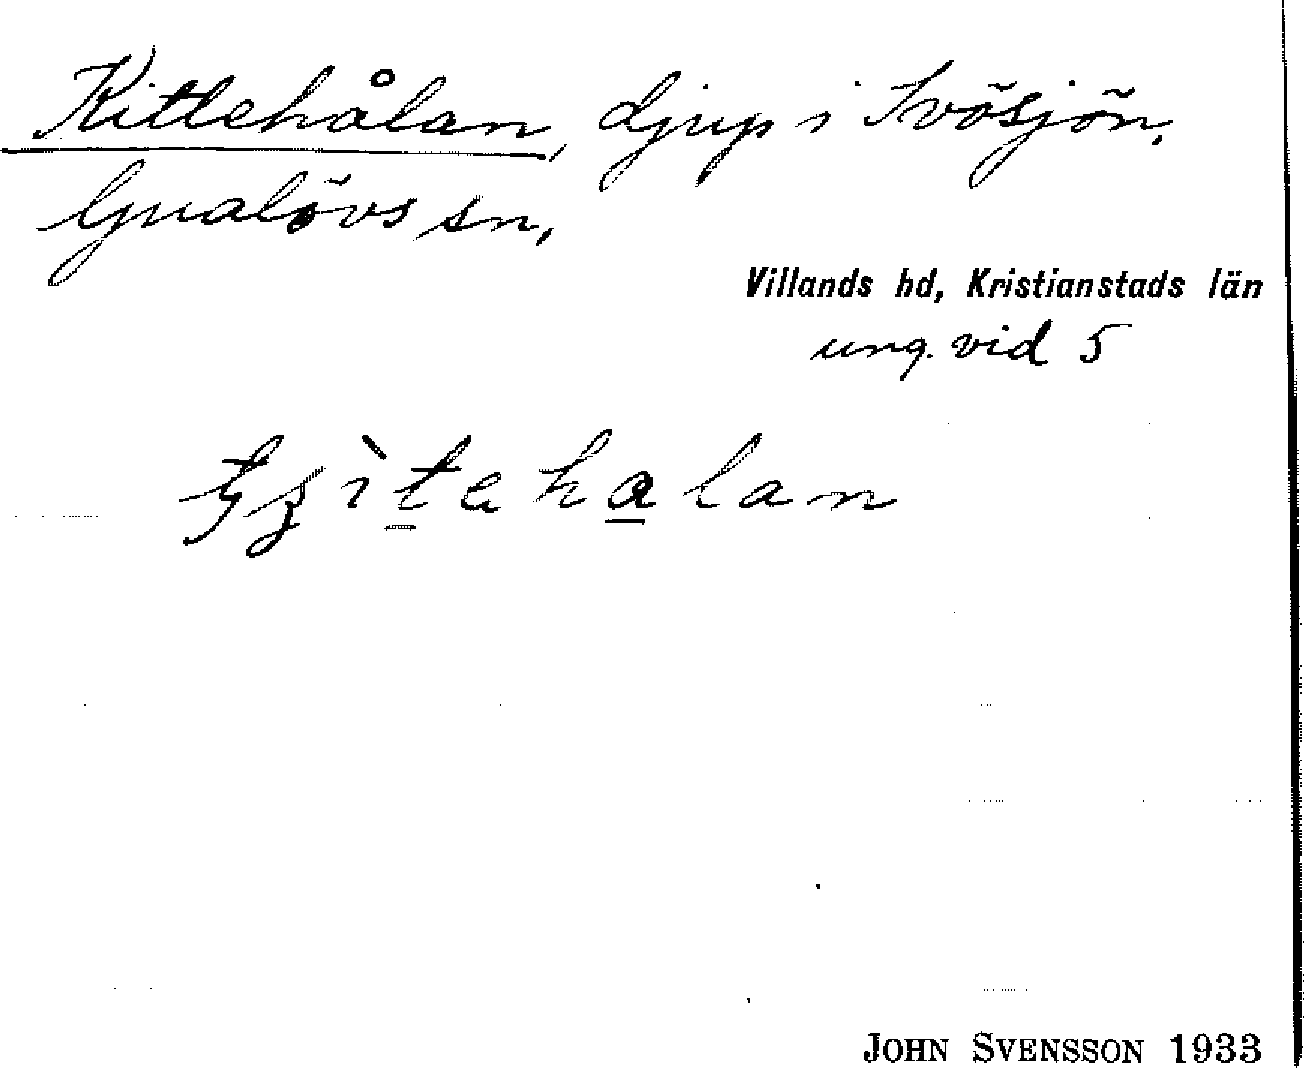 Kittehålan, djup i Ivösjön.
Gualövs sn,
Villands hd, Kristianstads län
ung. vid 5
JOHN SVENSSON 1933